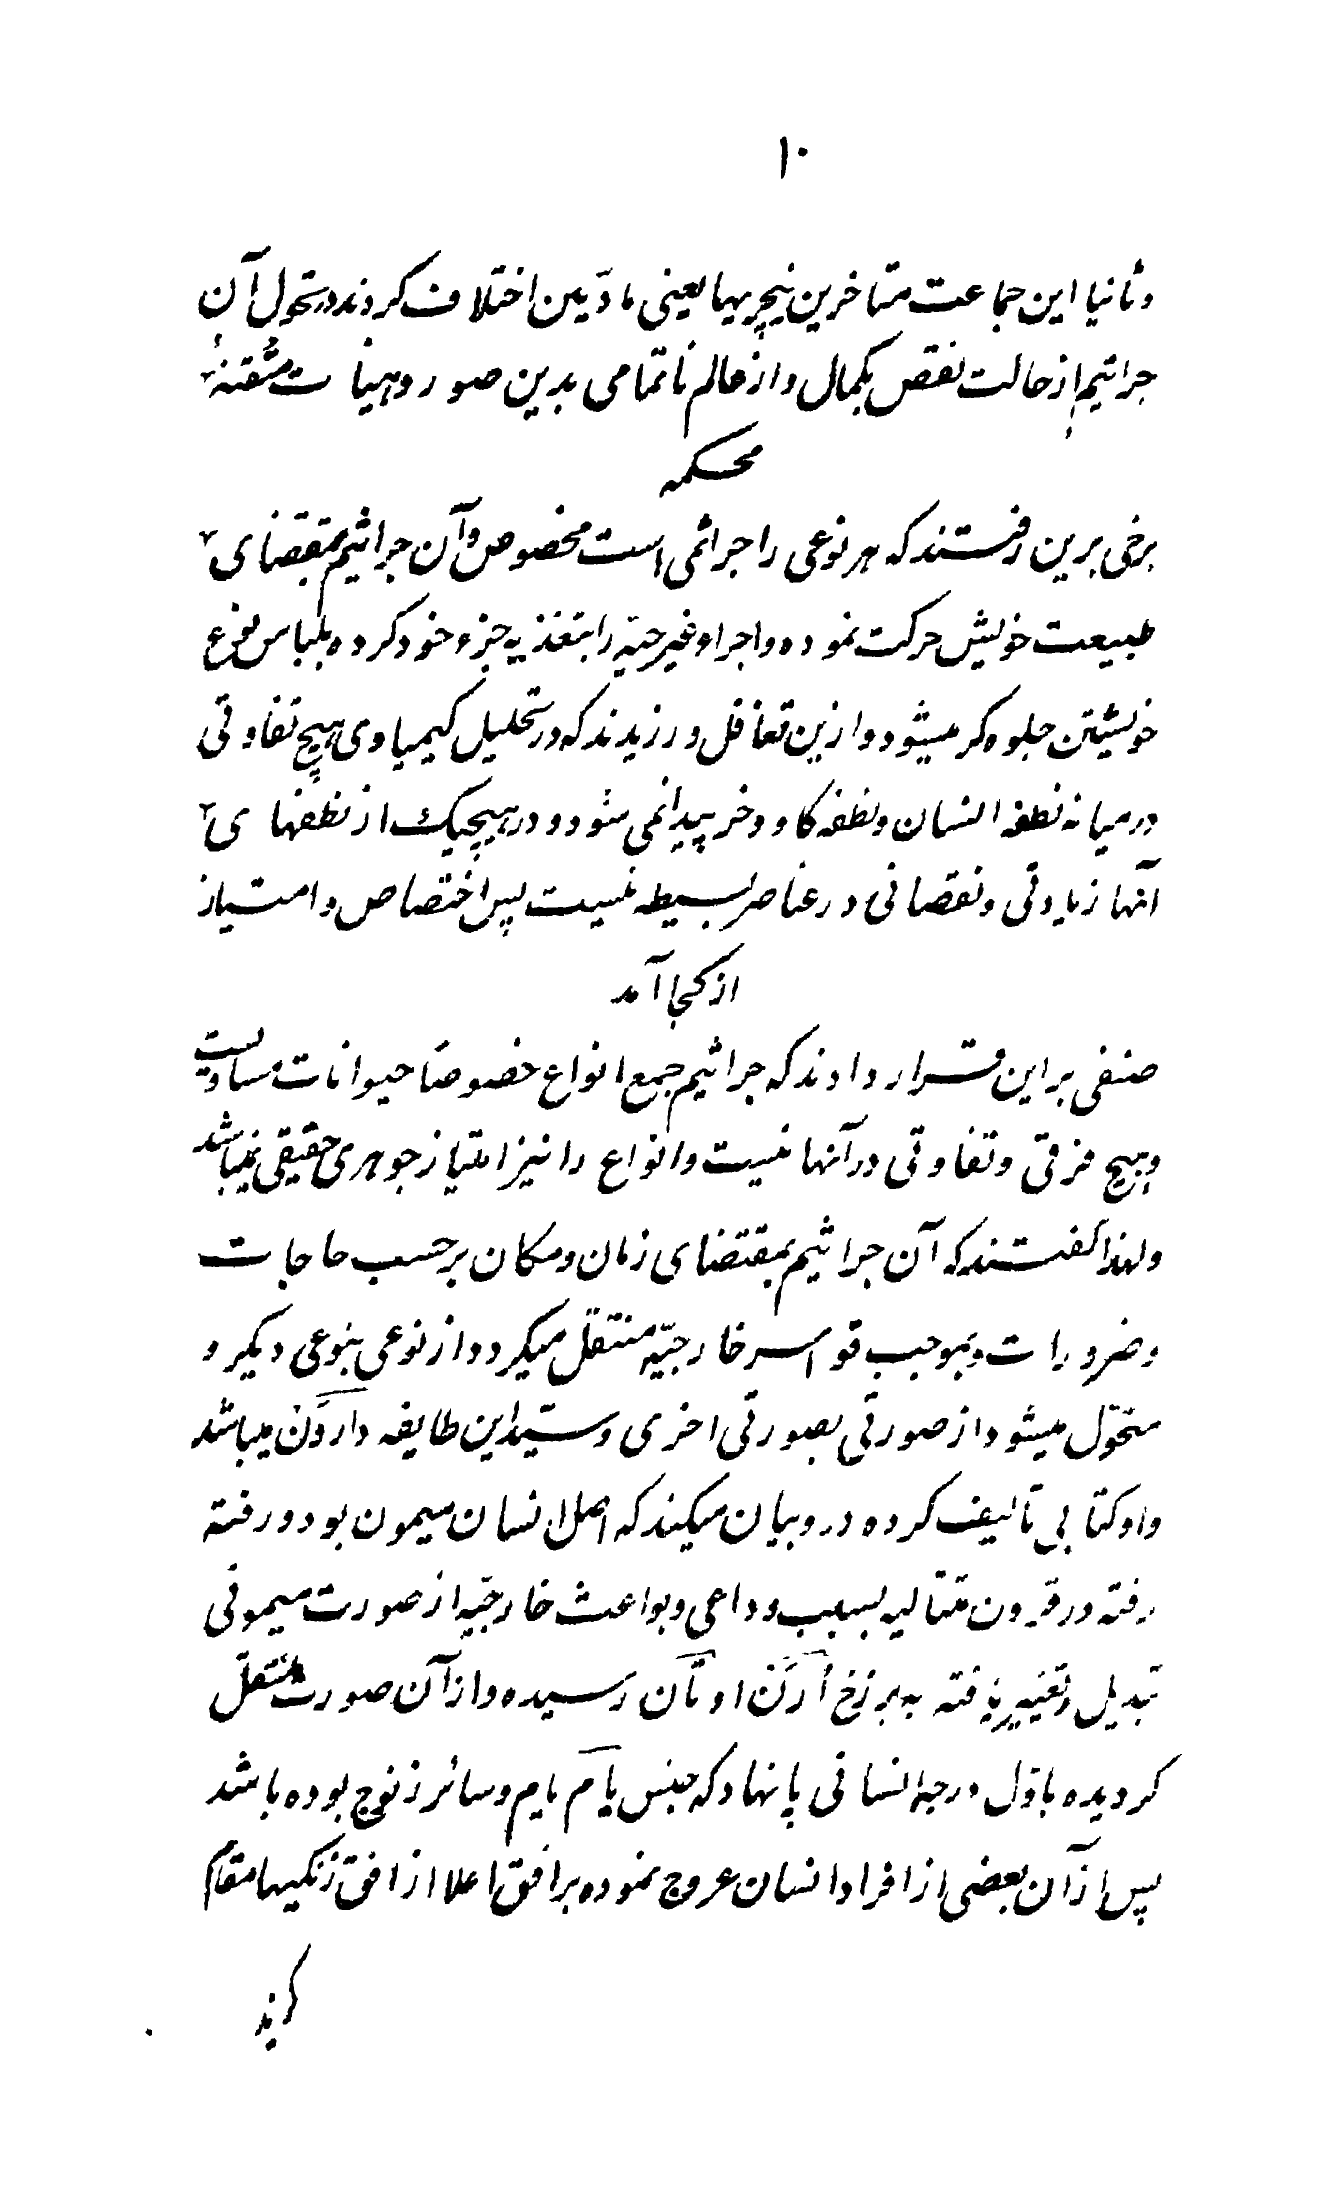 ۱۰
وثانیا این جماعت متأخرین نیچریها یعنی مادّیین اختلاف کردند در تحول آن
جراثیم از حالت نقص بکمال و از عالم ناتمامی بدین صور و هیئات متقنهٔ
محکمه
برخی برین رفتند که هر نوعی را جراثمی است مخصوص و آن جراثیم بمقتضای
طبیعت خویش حرکت نموده و اجزاء غیر حیّه را بتغذیه جزء خود کرده بلباس نوع
خویشتن جلوه کر میشود و ازین تغافل ورزیدند که در تحلیل کیمیاوی هیچ تفاوتی
در میانه نطفه انسان و نطفه کاو و خر پیدا نمی شود و در هیچیک از نطفهای
آنها زیادتی و نقصانی در عناصر بسیطه نیست پس اختصاص و امتیاز
از کجا آمد
صنفی بر این قرار دادند که جراثیم جمع انواع خصوصاً حیوانات مساویست
و هیچ فرقی و تفاوتی در آنها نیست و انواع را نیز امتیاز جوهری حقیقی نمیباشد
و لهذا کفتند که آن جراثیم بمقتضای زمان و مکان بر حسب حاجات
و ضرورات و بموجب قواسر خارجیّه منتقل میکردد از نوعی بنوعی دیکر و
متحوّل میشود از صورتی بصورتی اخری و سیّد این طایفه دارون میباشد
و او کتابی تألیف کرده در و بیان میکند که اصل انسان میمون بود و رفته
رفته در قرون متتالیه بسبب دواعی و بواعث خارجیّه از صورت میمونی
تبدیل و تغییر یافته به برزخ أرَنْ اوتان رسیده و از آن صورت منتقل
کردیده باوّل درجهٔ انسانی پا نهاد که جنس یام یام و سائر زنوج بوده باشد
پس از آن بعضی از افراد انسان عروج نموده بر افق اعلا از افق زنکیها مقام
کزید